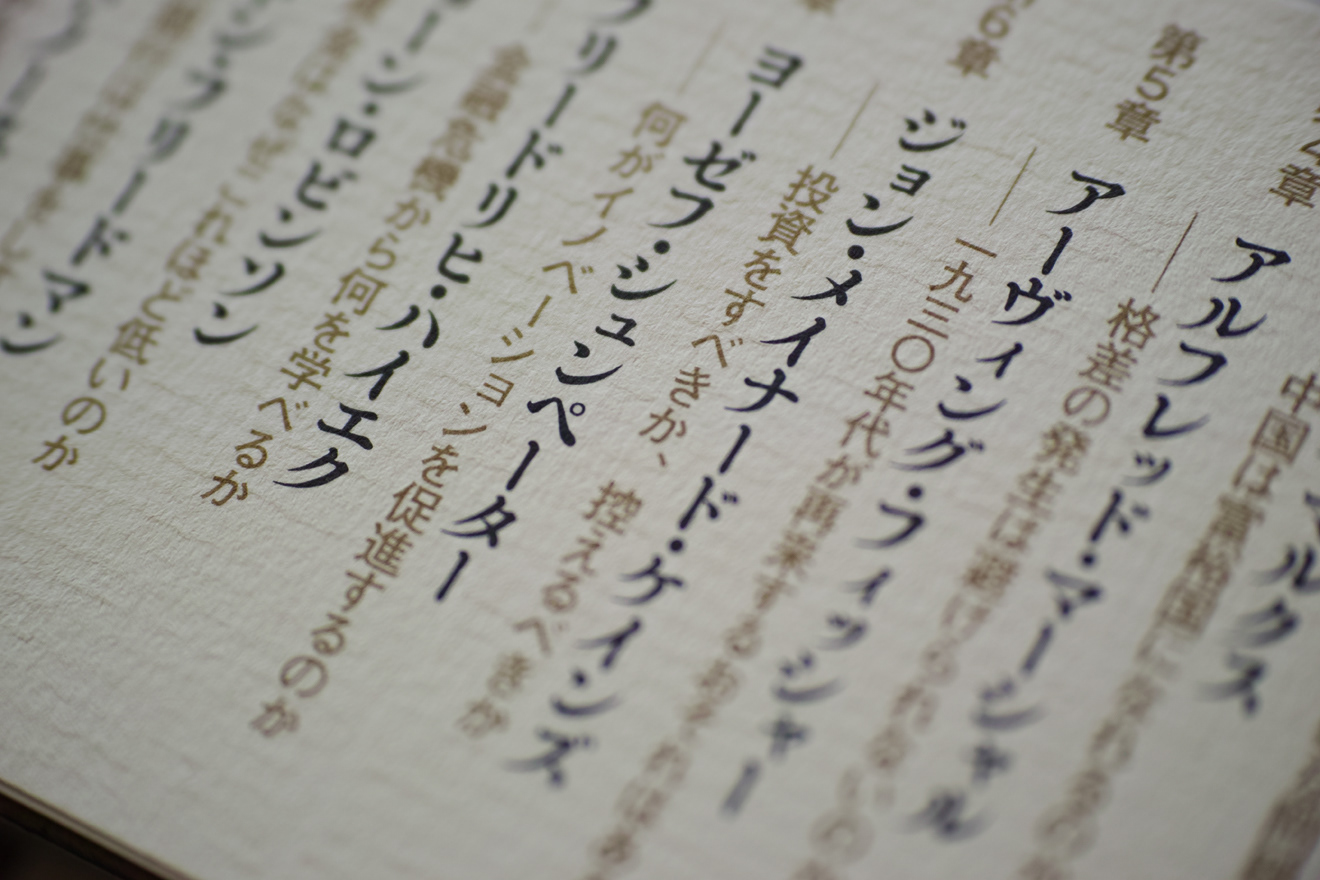 マルクス
中国は富裕国になれるの
第4章
アルフレッド・マーシャル
格差の発生は避けられない
第5章
アーヴィング・フィッシャー
一九三〇年代が再来する
第6章
ジョン・メイナード・ケインズ
投資をすべきか、控えるべきか
ヨーゼフ・シュンペーター
何がイノベーションを促進するのか
フリードリヒ・ハイエク
金融危機から何を学べるか
ーン・ロビンソン
賃金はなぜこれほど低いのか
ン・フリードマン